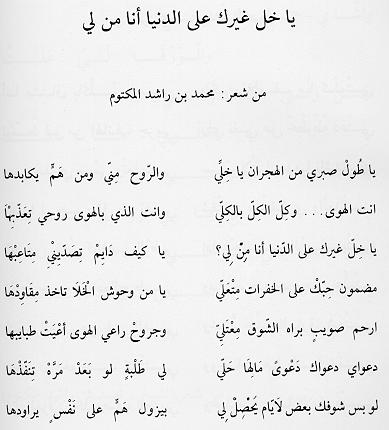 يا خل غيرك على الدنيا أنا من لي
من شعر : محمد بن راشد المكتوم
يا طُولْ صبري من الهجران يا خِلِّي والرّوح مِنّي ومن هَمٍّ يكابدها
انت الهوى... وكِلّ الكِلّ بالكِلّي وانت الذي بالهوى روحي تِعَذّبِهْا
يا خِلّ غيرك على الدّنيا أنا مِنّ لِي؟ يا كيف دَايِمْ تِصَدّينِيْ مِتَاعِبْها
مضمون حِبّك على الخفرات مِتْعَلّي يا من وحوش الْخَلَا تاخذ مِقاوِدْها
ارحم صويبٍ براه الشّوق مِعْتَلّيِ وجروحْ راعي الهوى أعْيَتْ طبايبها
دعواي دعواك دَعْوىً مَالِهَا حَلّي لي طَلْبةٍ لو بَعَدْ مَرَّهْ تِنَفّذْها
لو بس شوفك بعض لَايّام يَحْصِلْ لِي بيزول هَمٍّ على نَفْسٍ يراودها